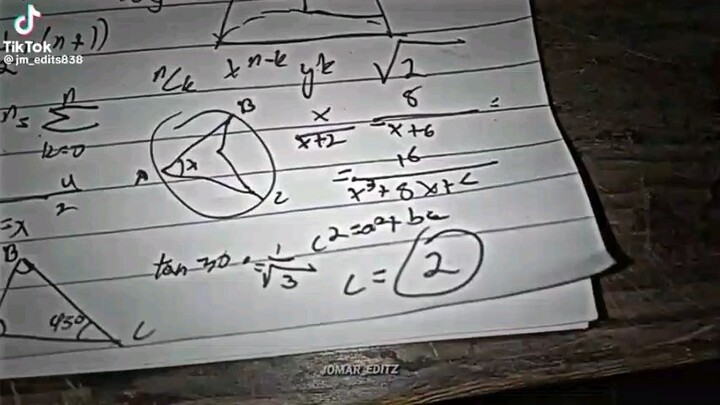 TikTok
@jm_edits838
(n+1)
2
nCk x^n-k y^k √2
n
Σ
k=0
B
A x
C
x/x+2 8/x+6 =
= 16/x³+8x+c
y/2
=x
tan 30 = 1/√3
c²=a²+b²
c= 2
B
45° C
JOMAR_EDITZ